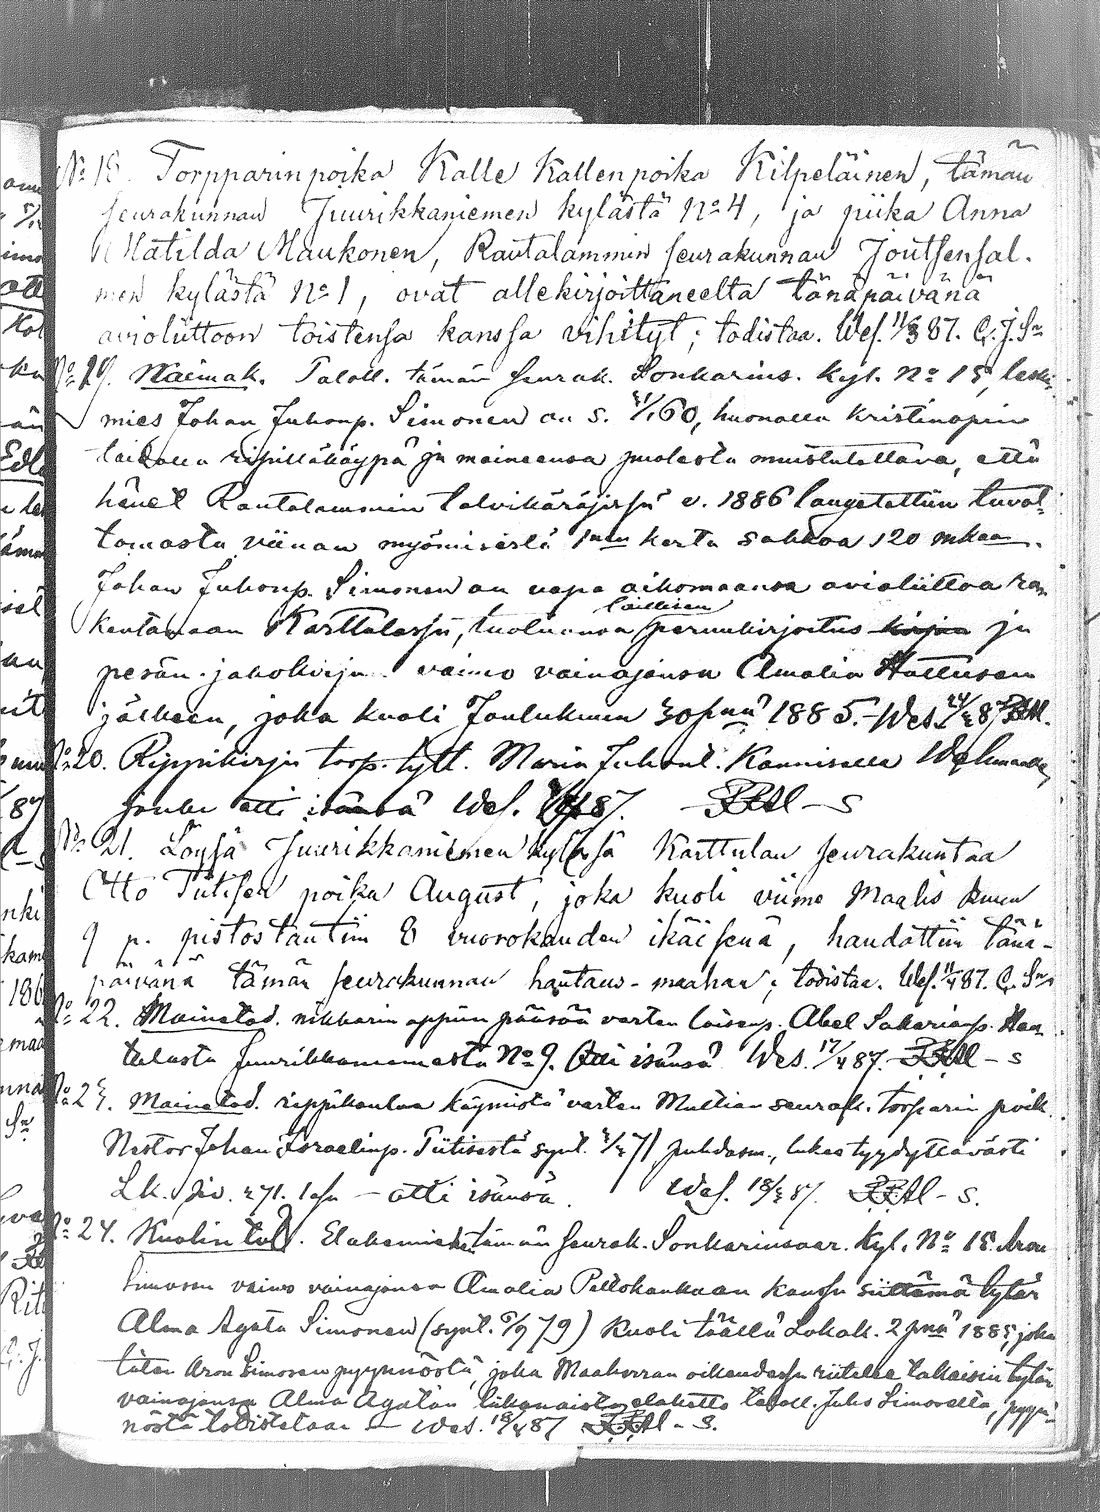 No 18. Torpparinpoika Kalle Kallenpoika Kilpeläinen, tämän
seurakunnan Juurikkaniemen kylästä No 4, ja piika Anna
Matilda Maukonen, Rautalammin seurakunnan Joutsensal-
men kylästä No 1, ovat allekirjoittaneelta tänäpäivänä
avioliittoon toistensa kanssa vihityt; todistaa. Wes. 87. C. J. Sn
No 19. Naimak. Taloll. tämän seurak. Sonkarins. kyl. No 15, leski-
mies Johan Juhonp. Simonen on s. 60, huonolla kristinopin
taidolla ripillä käypä ja maineensa puolesta muistutettava, että
hänet Rautalammin talvikäräjissä v. 1886 langetettiin luvat-
tomasta viinan myömisestä 1sen kerta sakkoa 120 mkaan.
Johan Juhonp. Simonen on vapa aikomaansa avioliittoa ra-
kentamaan Karttulassa, tuotuansa laillisen perunkirjoitus kirjan ja
pesän-jakokirja vaimo vainajansa Amalia Hallusen
jälkeen, joka kuoli Joulukuun 30 pnä 1885. Wes. 87
No 20. Rippikirja torp. tytt. Maria Juhont. Kanniselle Wehmaalle,
jonka otti isänsä Wes. 87. S
No 21. Löysä Juurikkaniemen kylässä Karttulan seurakuntaa
Otto Tiitisen poika August, joka kuoli viime Maalis kuun
9 p. pistostautiin 8 vuorokauden ikäisenä, haudattiin tänä-
päivänä tämän seurakunnan hautaus-maahan; todistaa. Wes. 87. C. Sn
No 22. Mainetod. nikkarin oppiin pääsöä varten loisenp. Abel Sakarianp.
Juurikkaniemestä No 9. Otti isänsä Wes. 17/4 87. S
No 23. Mainetod. rippikoulua käymistä varten Multian seurak. torparin poik.
Nestor Johan Israelinp. Tiitisestä synt. 71 puhdasm., lukee tyydyttävästi
Lk. siv. 271. 1sn – otti isänsä. Wes. 18/4 87. S.
No 24. Kuolin tod. Elakemiehen tämän seurak. Sonkarinsaar. kyl. No 15. Aron
Simosen vaimo vainajansa Amalia Peltokankaan kanssa siittämä tytär
Alma Agata Simonen (synt. 79) kuoli täällä Lokak. 2 pnä 1885, joka
täten Aron Simosen pyynnöstä, joka Maaherran oikeudessa riitelee takaisin tytär
vainajansa Alma Agatan liikanaista elaketta taloll. Juho Simoselta, pyyn-
nöstä todistetaan – Wes. 18/4 87 S.